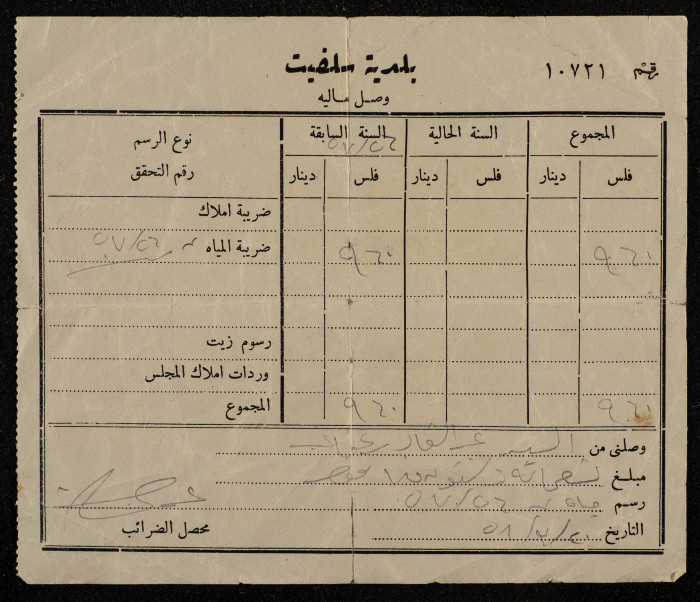 رقم ١٠٧٢١
بلدية سلفيت
وصل ماليه
نوع الرسم
رقم التحقق
السنة السابقة
٥٧/٥٦
السنة الحالية
المجموع
دينار فلس دينار فلس دينار فلس
ضريبة املاك
ضريبة المياه ٥٧/٥٦ ٩٦٠ ٩٦٠
رسوم زيت
وردات املاك المجلس
المجموع ٩٦٠ ٩٦٠
وصلني من السيد عبد القادر
مبلغ تسعماية وستون فلسا فقط
رسم مياه ٥٧/٥٦
التاريخ
محصل الضرائب